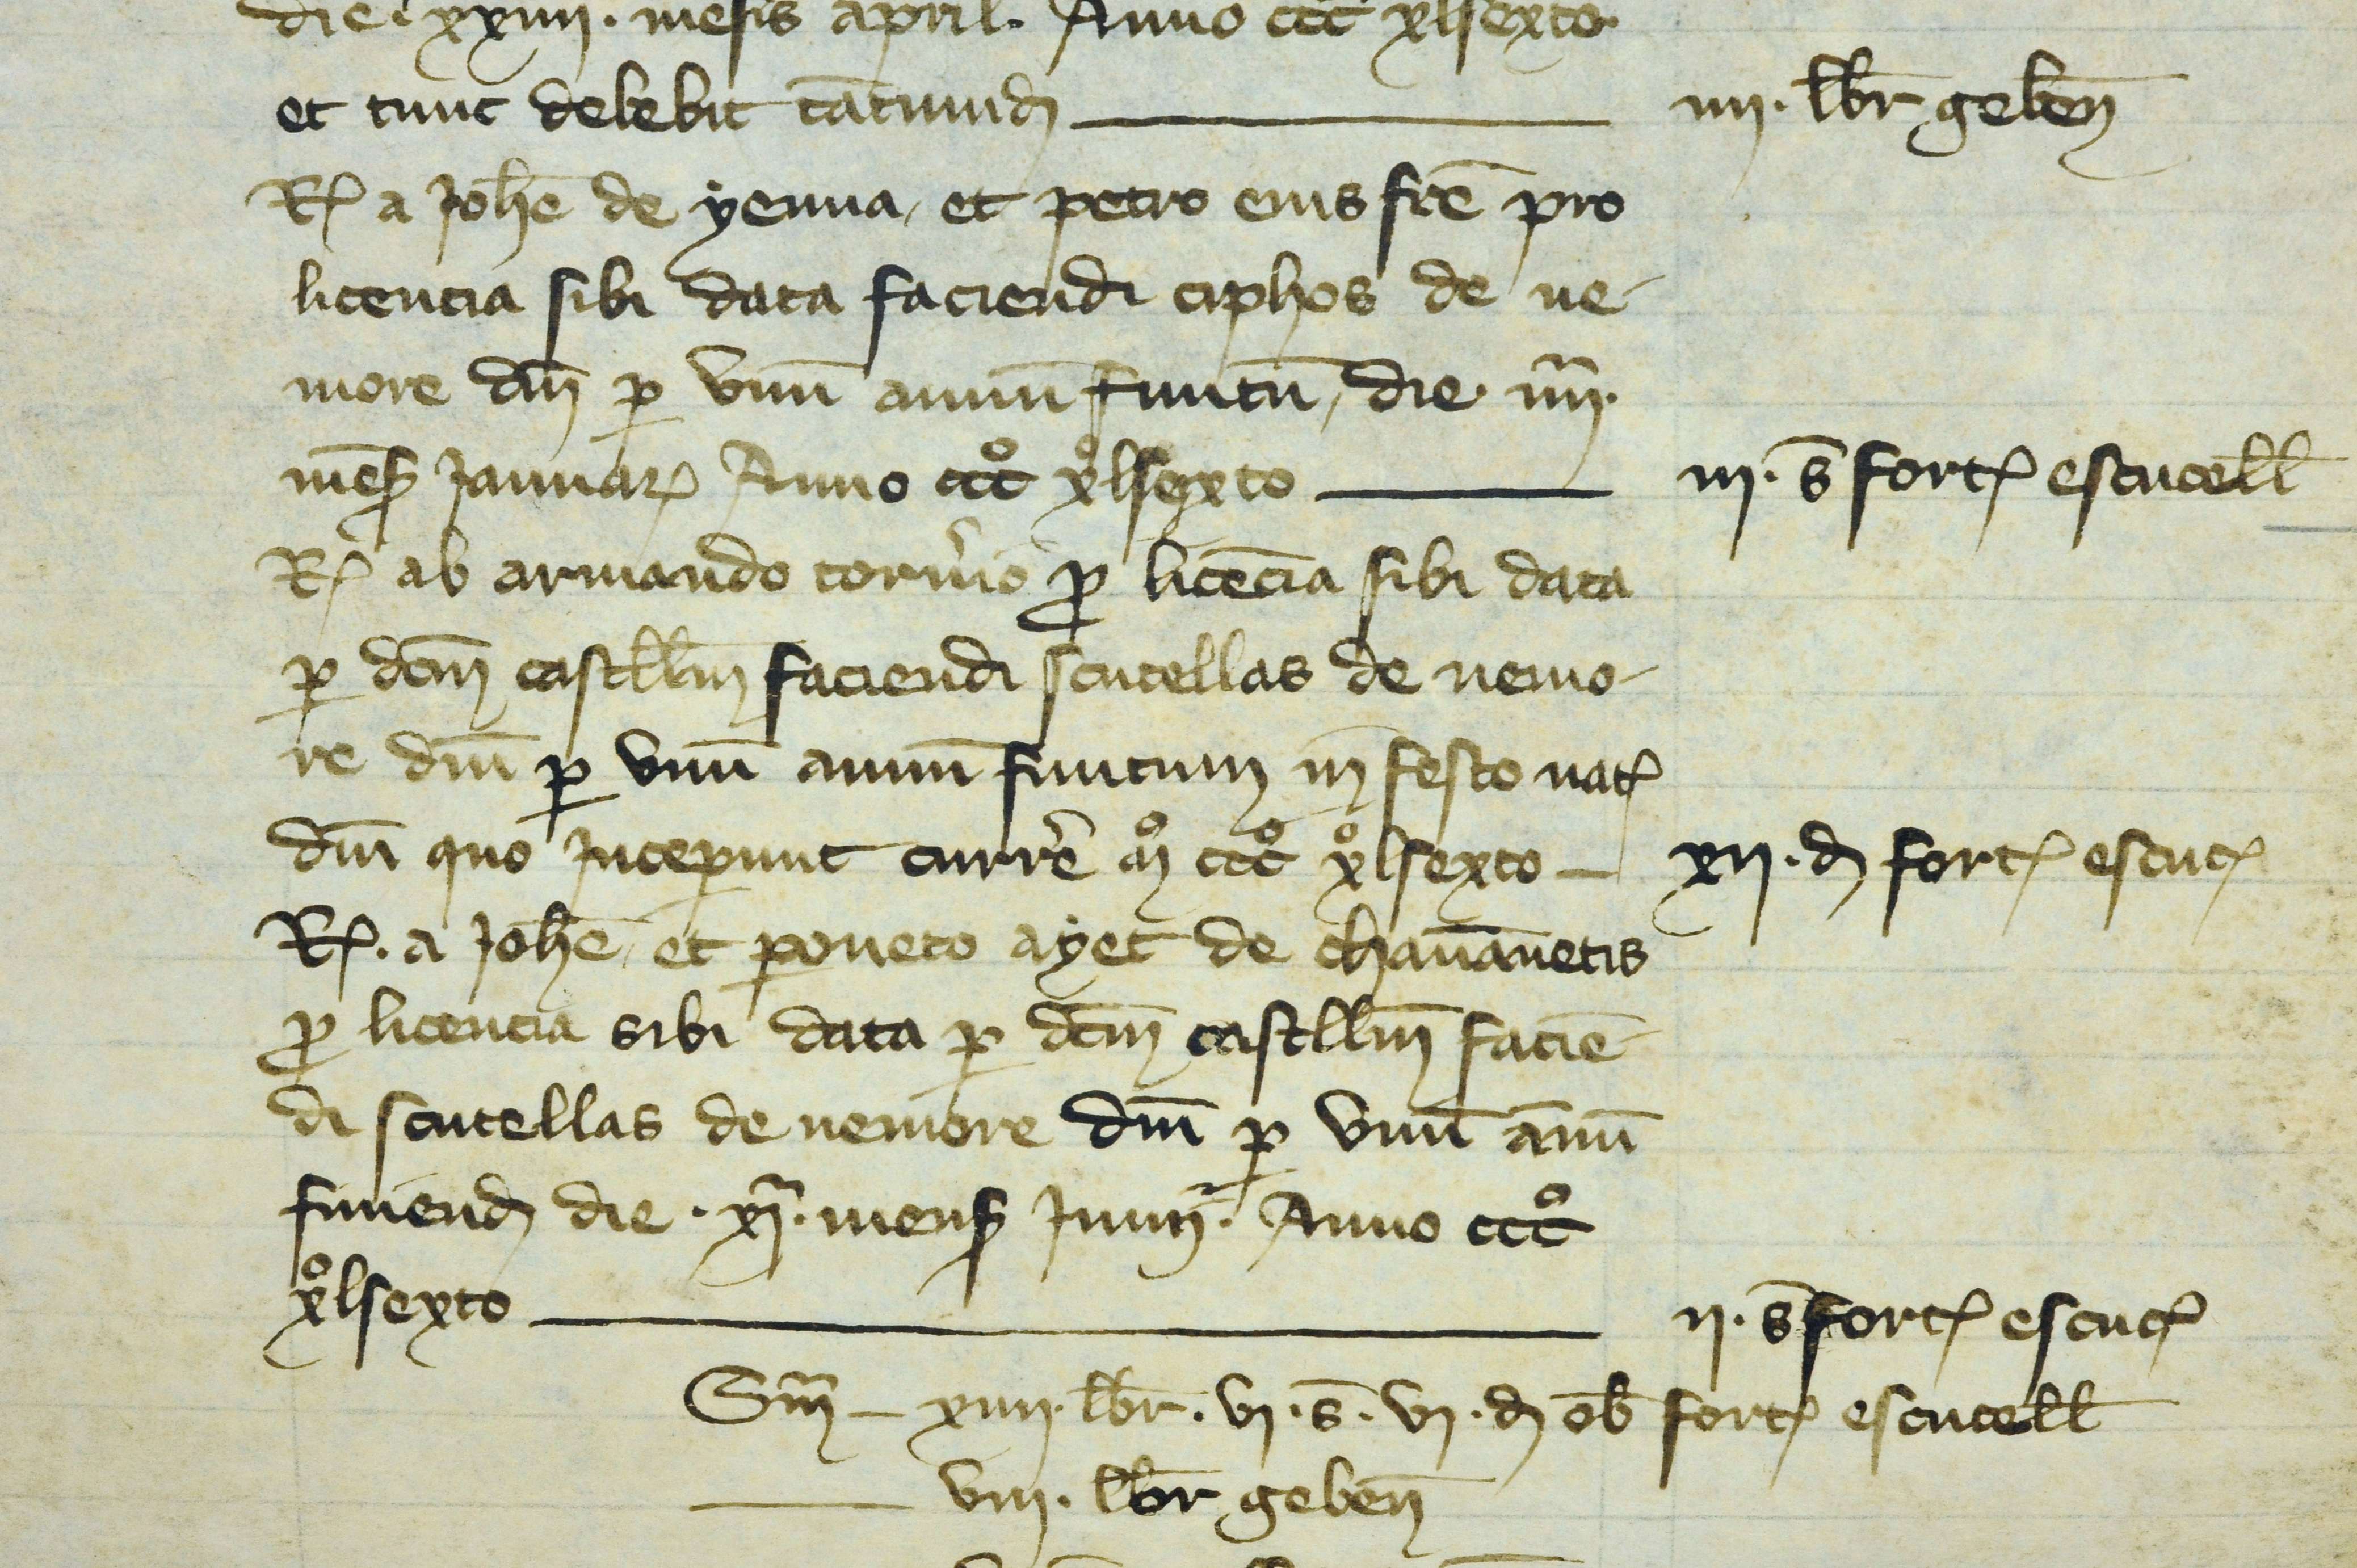 die · xxiiii · mēsis april. Anno ccc̄ xlsexto
et tunc debebit tātumd̄ iiii · lb̄r gebeñ
Rꝭ a Joh̄e de yenna, et petro eius fr̄e pro
licencia sibi data faciendi ciphos de ne-
more dn̄i ꝑ vnū annū finitū, die iiiᵃ.
mēs̄ Januarꝭ Anno cccº xºlsexto iii · s̄ fortꝭ escucell̄
Rꝭ ab armando torn̾io ꝓ licēcia sibi data
ꝑ dc̄m castll̄m faciendi scutellas de nemo-
re dn̄i ꝑ vnū annū finitum in festo natꝭ
dn̄i quo inceperunt curr̾e aº cccº xºlsexto xii · d̄ fortꝭ escucꝭ
Rꝭ. a Joh̄e et peroneto ayet de chauānetis
ꝓ licencia sibi data ꝑ dc̄m castll̄m faciē-
di scutellas de nemore dn̄i ꝑ vnū ānū
finiend̄ die · xiᵃ · mens̄ Junii. Anno cccº
xºlsexto ii · s̄ fortꝭ escucꝭ
Sm̄ᵃ xiiii · lb̄r · vi · s̄ · vi · d̄ ob̄ fortꝭ escucell̄
viii · lb̄r gebeñ